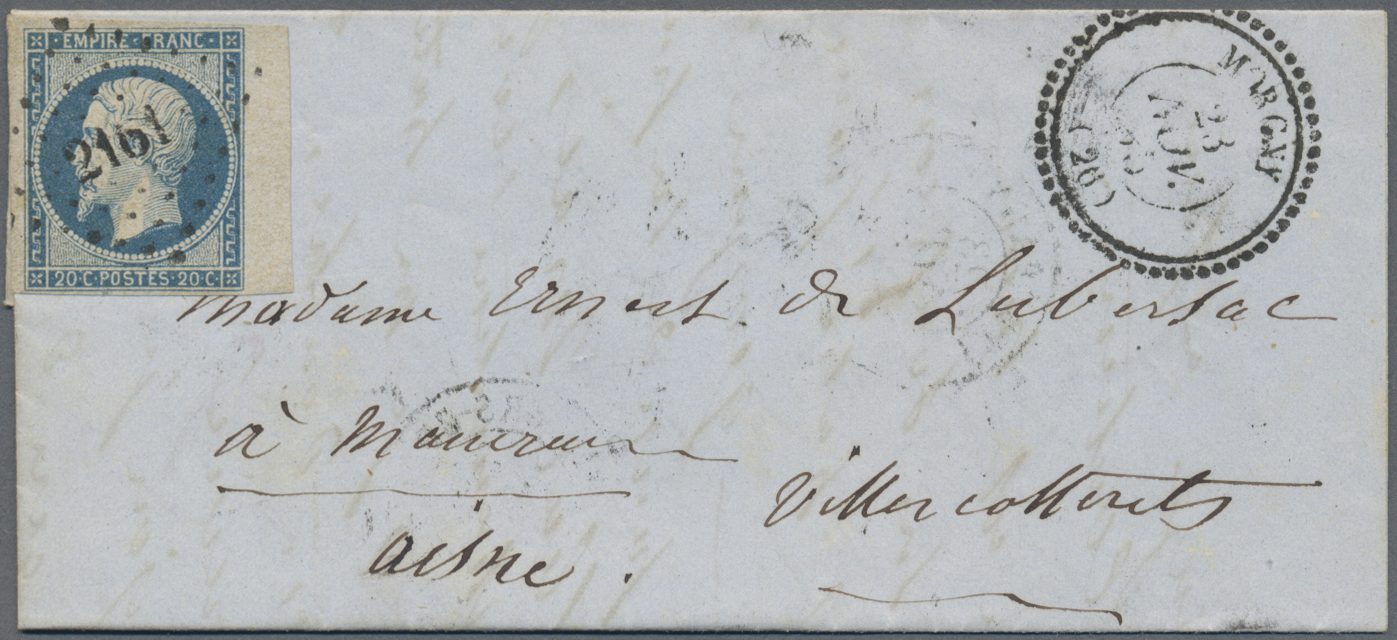 EMPIRE · FRANC ·
2161
20 · C · POSTES · 20 · C ·
MORGNY
23
NOV.
(02)
Madame Ernest de Lubersac
à
Villers cotterets
aisne.